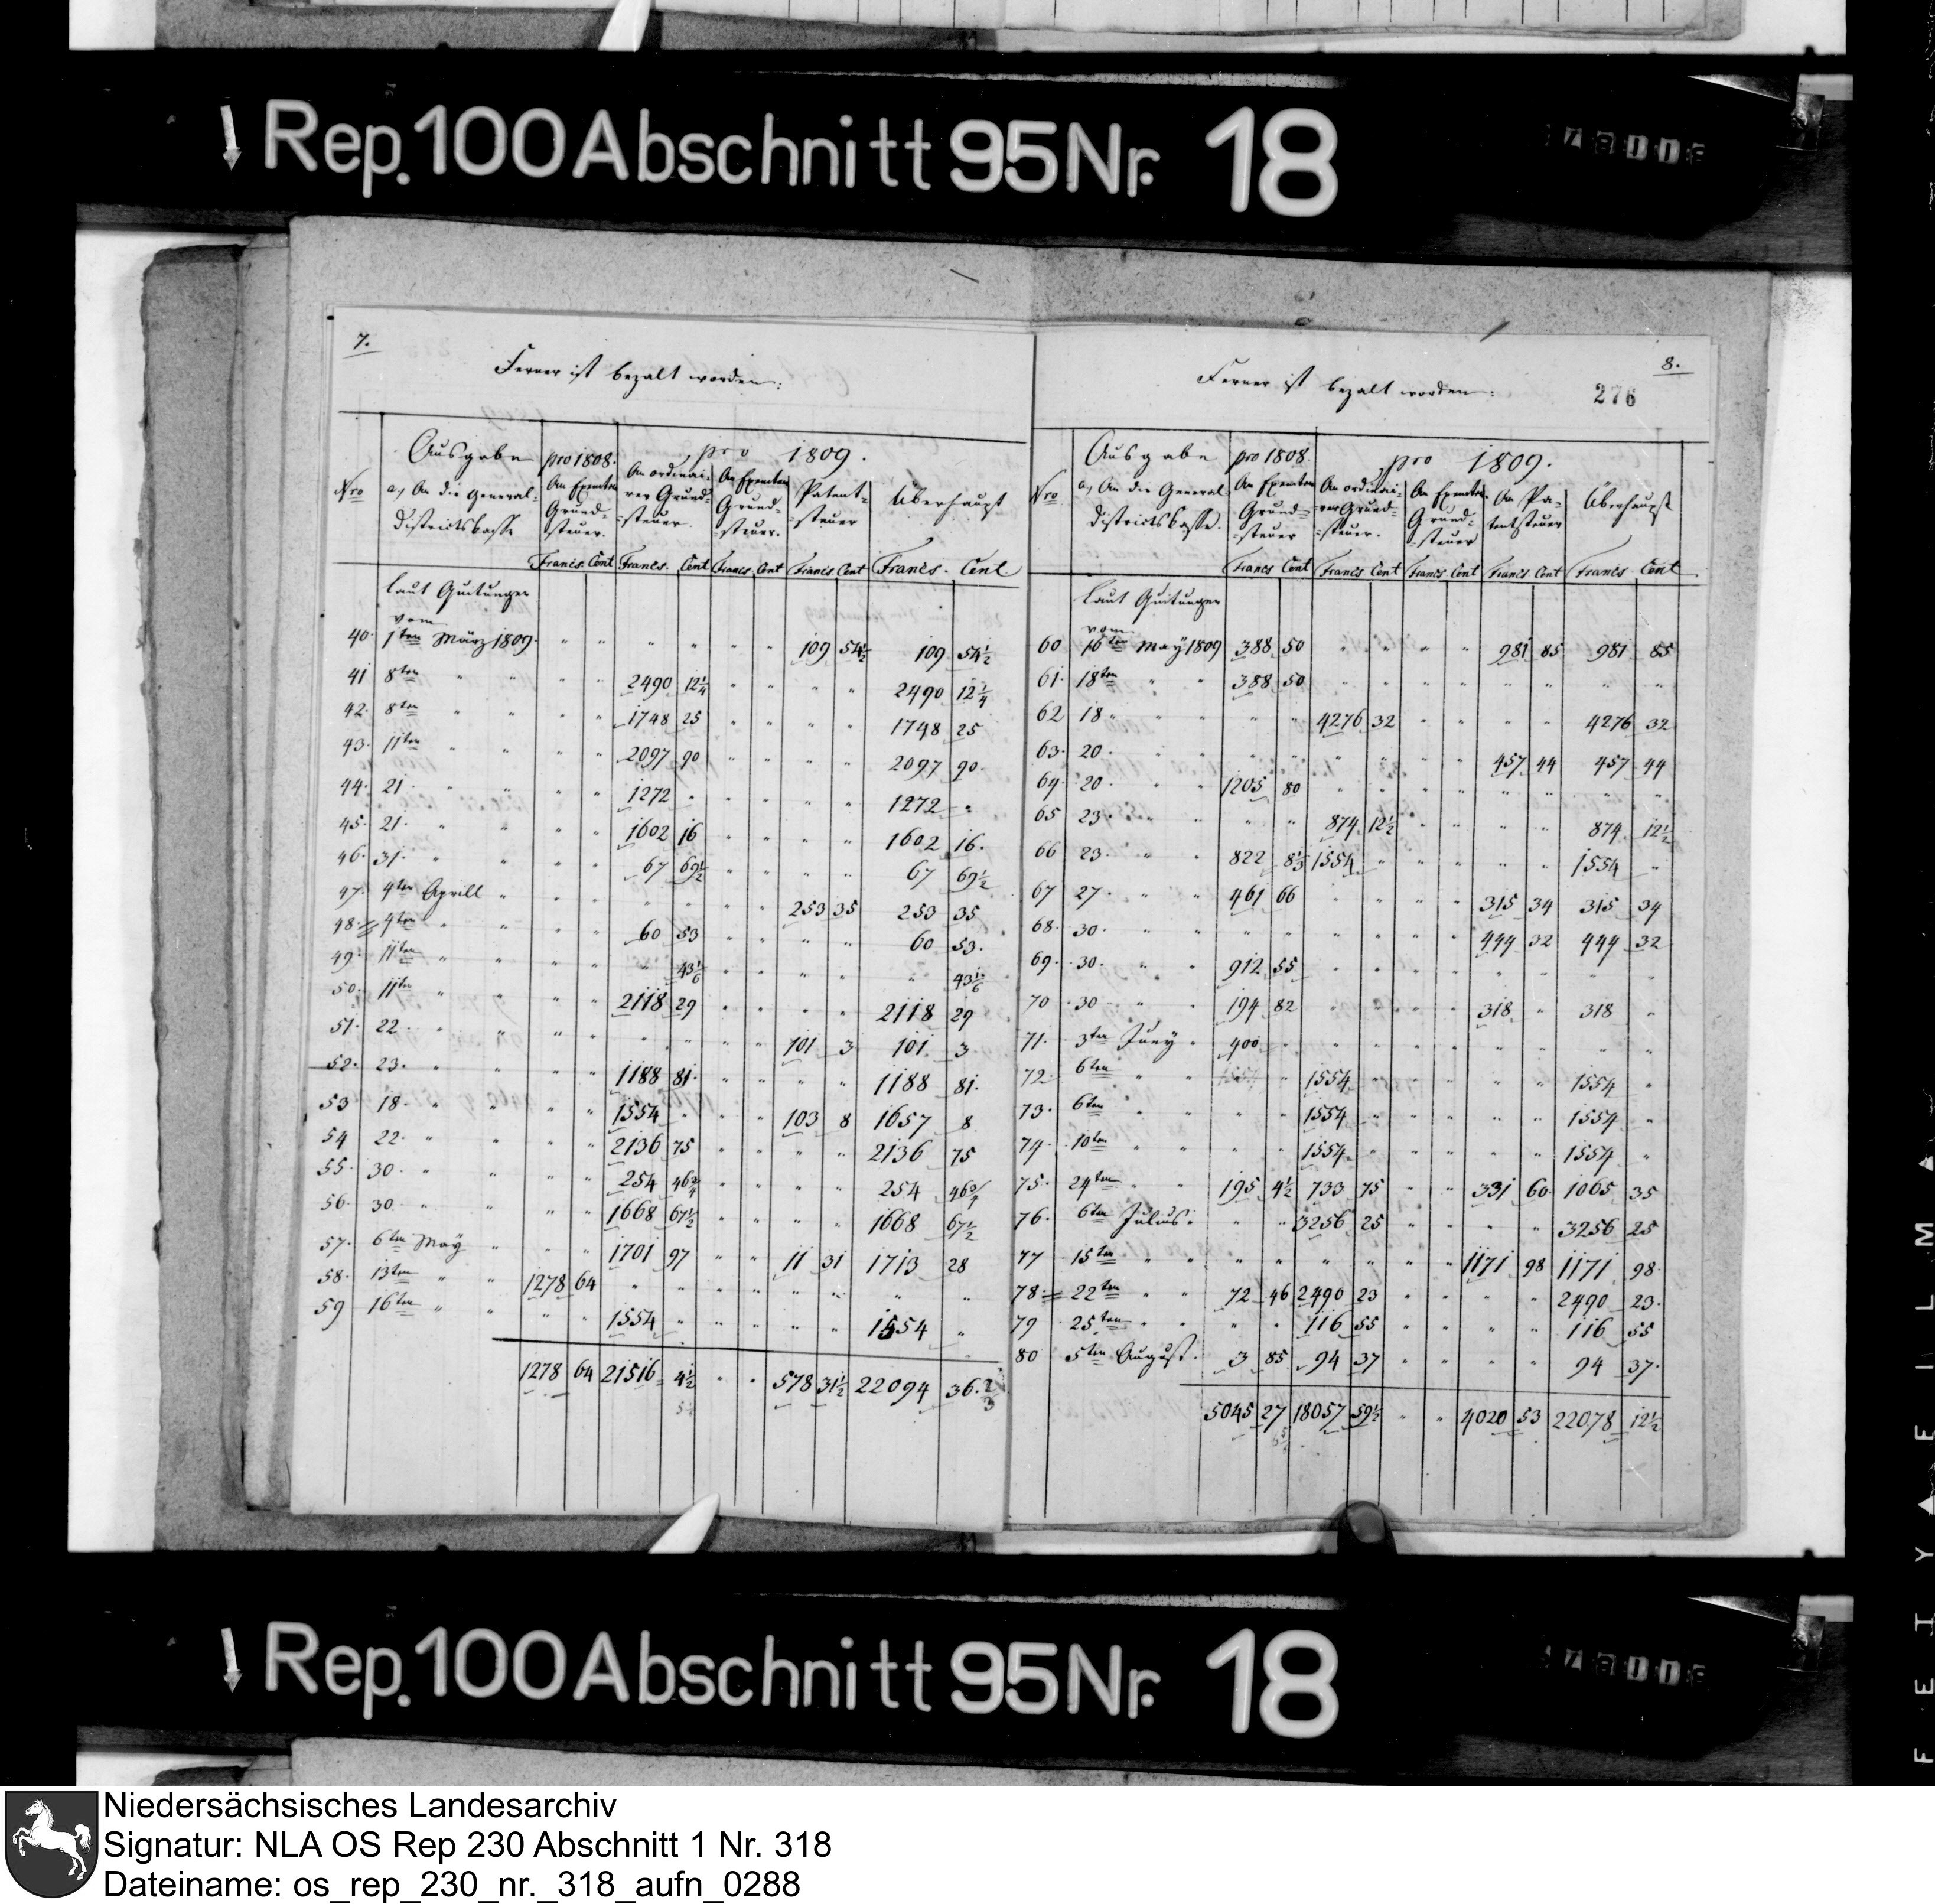 Rep. 100 Abschnitt 95 Nr. 18
7.
Ferner ist bezalt worden:
Nro
Ausgabe
a, An die General-
Districtskasse
pro 1808.
An Exemten
Grund-
steuer.
pro 1809.
An ordinai-
rer Grund-
steuer.
An Exemten
Grund-
steuer.
Patent-
steuer
Überhaupt
Francs. Cent Francs. Cent Francs. Cent Francs Cent Francs. Cent
laut Quitungen
vom
40. 1ten März 1809. " " " " " " 109 54½ 109 54½
41 8ten " " " " 2490 12¼ " " " " 2490 12¼
42. 8ten " " " " 1748 25 " " " " 1748 25
43. 11ten " " " " 2097 90 " " " " 2097 90.
44. 21. " " " " 1272 " " " " " 1272 "
45. 21. " " " " 1602 16 " " " " 1602 16.
46. 31. " " " " 67 69½ " " " " 67 69½
47. 4ten Aprill " " " " " " " 253 35 253 35
48. 4ten " " " " 60 53 " " " " 60 53.
49. 11ten " " " " " 43⅙ " " " " " 43⅙
50. 11ten " " " " 2118 29 " " " " 2118 29
51. 22. " " " " " " " " 101 3 101 3
52. 23. " " " " 1188 81. " " " " 1188 81.
53 18. " " " " 1554 " " " 103 8 1657 8
54 22. " " " " 2136 75 " " " " 2136 75
55. 30. " " " " 254 46¾ " " " " 254 46¾
56. 30. " " " " 1668 67½ " " " " 1668 67½
57. 6ten May " " " 1701 97 " " 11 31 1713 28
58. 13ten " " 1278 64 " " " " " " " "
59 16ten " " " " 1554 " " " " " 1554 "
1278 64 21516 4½ " " 578 31½ 22094 36.
8.
276
Ferner ist bezalt worden:
Nro
Ausgabe
a, An die General
Districtskasse.
pro 1808.
An Exemten
Grund-
steuer
pro 1809.
An ordinai-
rer Grund-
steuer.
An Exemten
Grund-
steuer
An Pa-
tentsteuer
Überhaupt
Francs Cent Francs Cent Francs Cent Francs Cent Francs Cent
laut Quitungen
vom
60 16ten May 1809 388 50 " " " " 981 85 981 85
61. 18ten " " 388 50 " " " " " " " "
62 18 " " " " " 4276 32 " " " " 4276 32
63. 20. " " " " " " " " 457 44 457 44
64. 20. " " 1205 80 " " " " " " " "
65 23. " " " " 874 12½ " " " " 874 12½
66 23. " " 822 8⅓ 1554 " " " " " 1554 "
67 27. " " 461 66 " " " " 315 34 315 34
68. 30. " " " " " " " " 444 32 444 32
69. 30. " " 912 55 " " " " " " " "
70 30 " " 194 82 " " " " 318 " 318 "
71. 3ten Juny " 400 " " " " " " " " "
72. 6ten " " 1554 " 1554 " " " " " 1554 "
73. 6ten " " " " 1554 " " " " " 1554 "
74. 10ten " " " " 1554 " " " " " 1554 "
75. 24ten " " 195 4½ 733 75 " " 331 60 1065 35
76. 6ten Julius. " " 3256 25 " " " " 3256 25
77 15ten " " " " " " " " 1171 98 1171 98.
78. 22ten " " 72 46 2490 23 " " " " 2490 23.
79 25ten " " " " 116 55 " " " " 116 55
80 5ten August. 3 85 94 37 " " " " 94 37.
5045 27 18057 59½ " " 4020 53 22078 12½
Rep. 100 Abschnitt 95 Nr. 18
Niedersächsisches Landesarchiv
Signatur: NLA OS Rep 230 Abschnitt 1 Nr. 318
Dateiname: os_rep_230_nr._318_aufn_0288